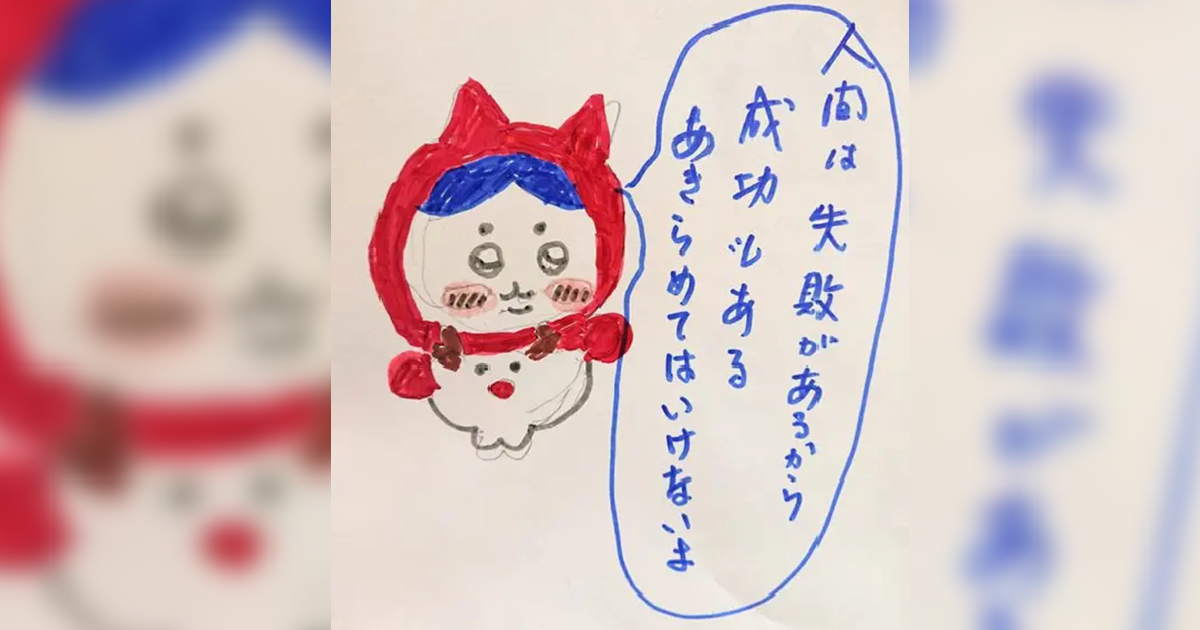 人間は失敗があるから
成功もある
あきらめてはいけないよ